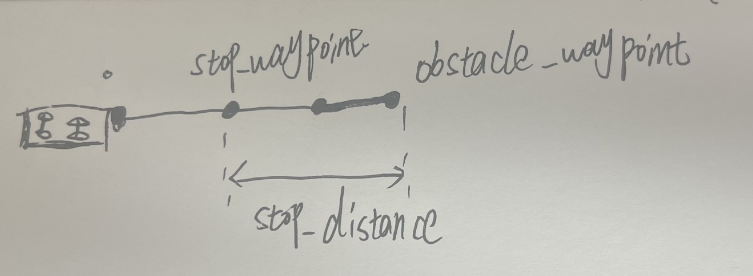 stop_waypoint
obstacle_waypoint
stop_distance